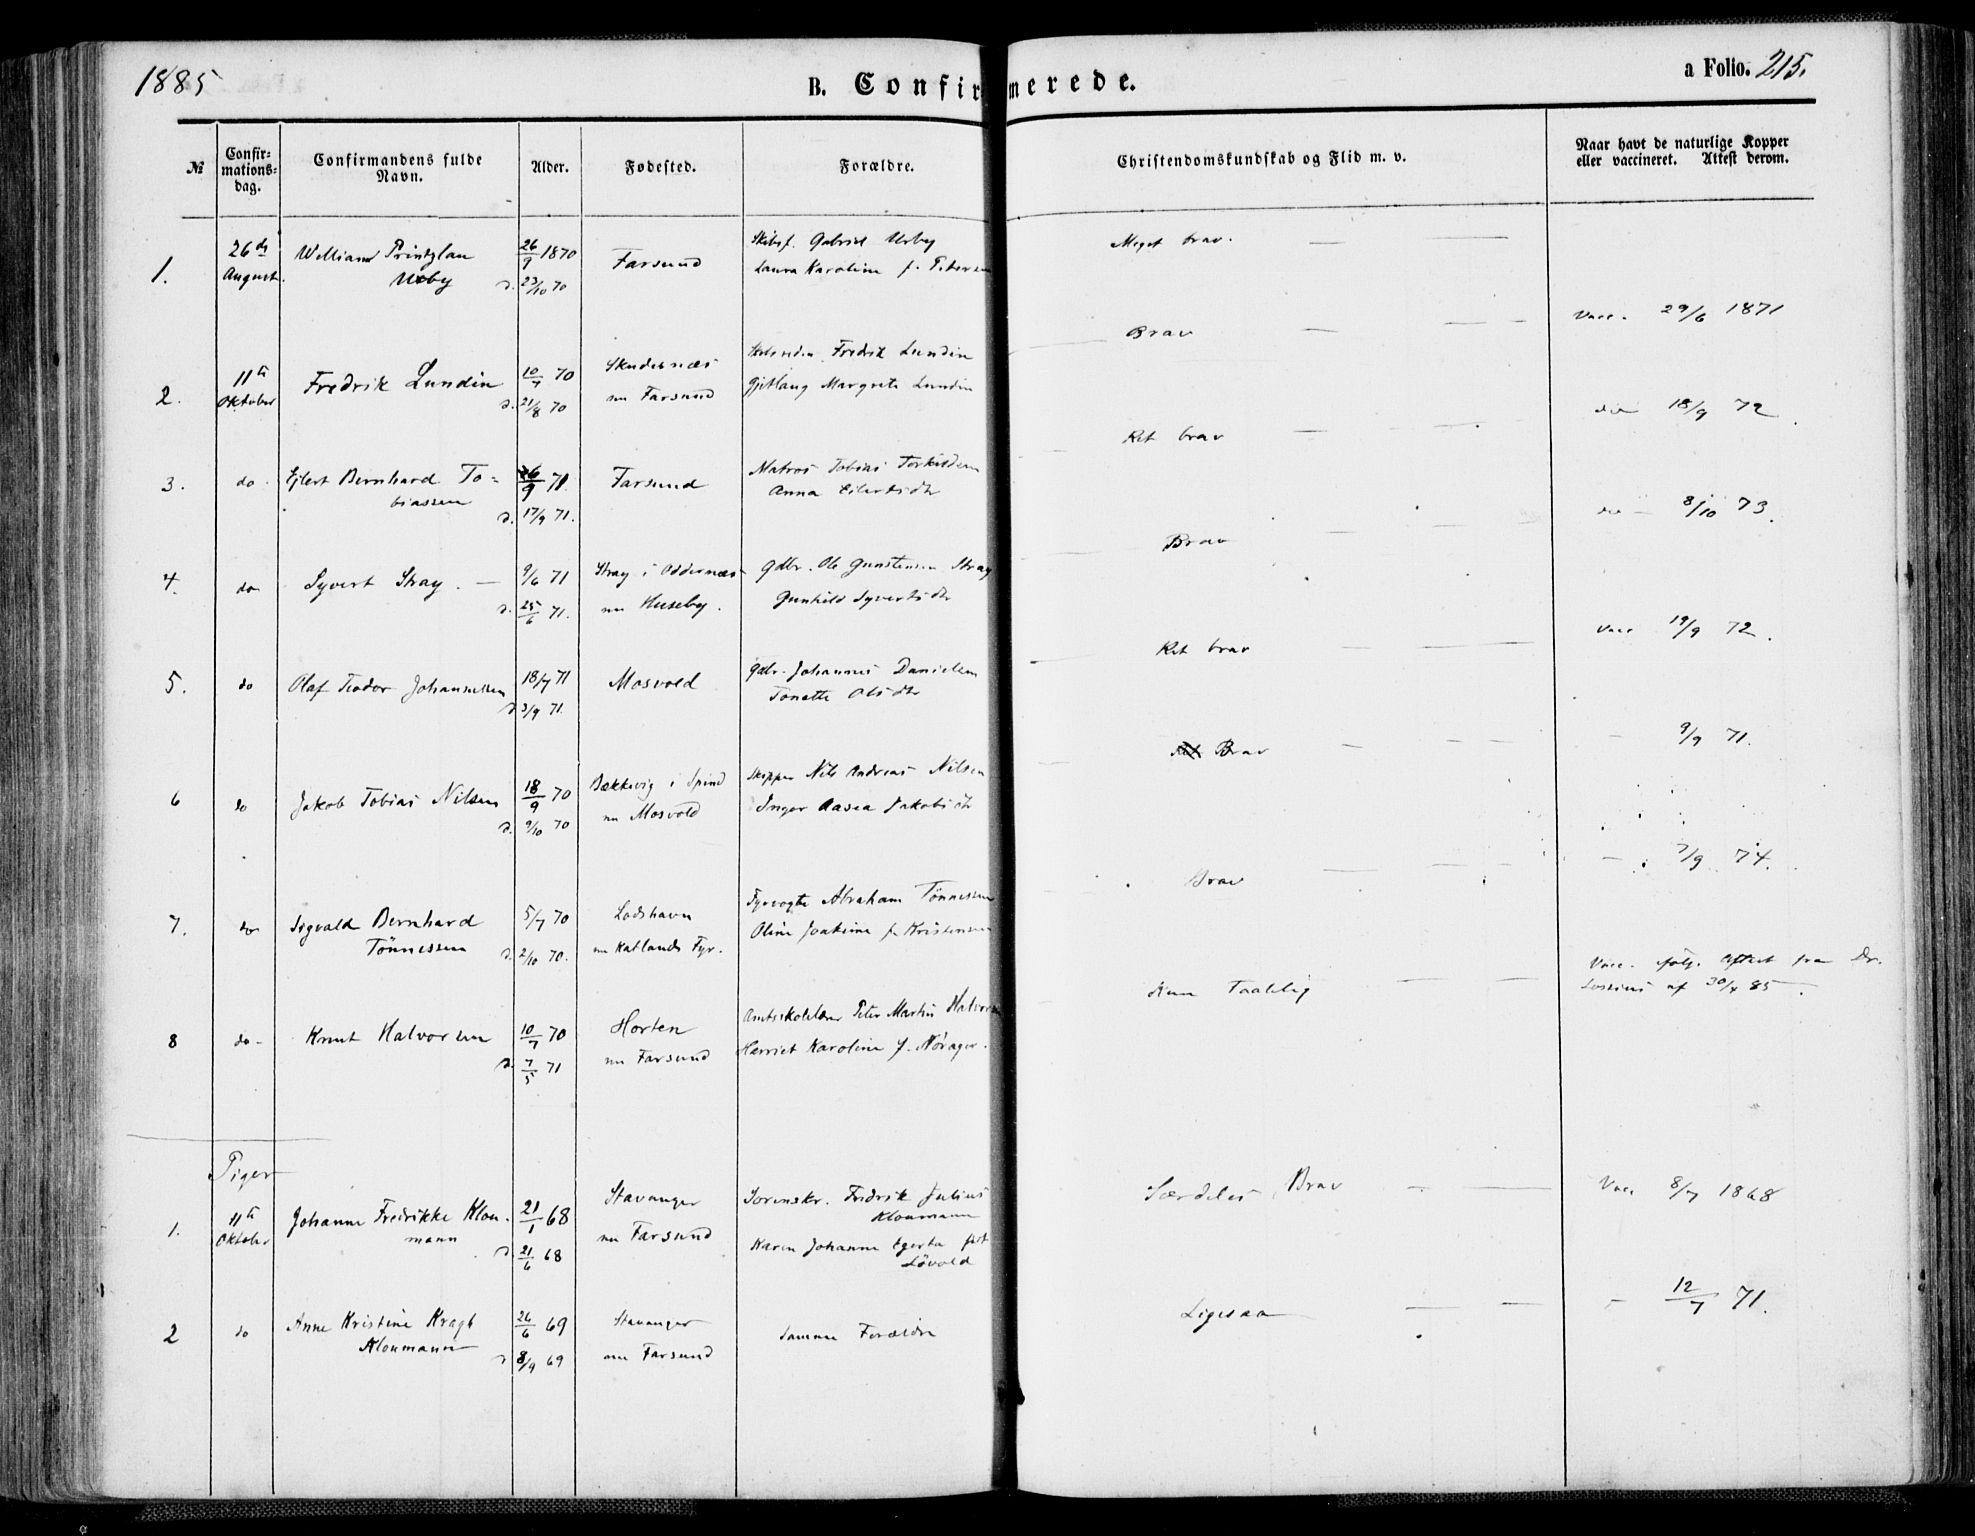 1885
B. Confirmerede.
a Folio. 215.
№
Confir-
mations-
dag.
Confirmandens fulde
Navn.
Alder.
Fødested.
Forældre.
Christendomskundskab og Flid m. v.
Naar havt de naturlige Kopper
eller vaccineret. Attest derom.
1.
26de
August.
William Printzlau
Usby
26/9 1870
d. 23/10 70
Farsund
Skibsf. Gabriel Usby
Laura Karoline f. Petersen
Meget brav. — —
Vacc. 29/6 1871
2.
11te
Oktober
Fredrik Lundin
10/7 70
d. 21/8 70
Skudesnæs
nu Farsund
Fredrik Lundin
Margrete Lundin
Brav — —
do 18/9 72
3.
do
Ejlert Bernhard To-
biassen
26/9 71
d. 17/9 71.
Farsund
Matros Tobias Torkildsen
Anna Eilertsdtr
Ret brav — —
do — 8/10 73.
4.
do
Syvert Stray. —
9/6 71
d. 25/6 71.
Stray i Oddernæs
nu Huseby.
Gdbr. Ole Gunstensen Stray
Gunhild Syvertsdtr
Brav — —
Vacc 19/9 72.
5.
do
Olaf Teodor Johannessen
18/7 71
d 3/9 71.
Mosvold
Gdbr. Johannes Danielsen
Tonette Olsdtr
Ret brav — —
— 9/9 71.
6
do
Jakob Tobias Nilsen
18/9 70
d. 9/10 70
Bækkevig i Spind
nu Mosvold
Skipper Nils Andreas Nilsen
Inger Aasea Jakobsdtr
Ret Brav — —
— 7/9 74.
7.
do
Sigvald Bernhard
Tönnessen
5/7 70
d. 2/10 70.
Lodshavn
nu Katlands Fyr.
Fyrvogte Abraham Tönnessen
Oline Joakime f. Kristensen
Brav — —
Vacc. følg. Attest fra Dr.
af 30/4 85.
8
do
Knut Halvorsen
10/7 70
d. 7/5 71
Horten
nu Farsund
Amtsskolelærer Peter Martin Halvorsen
Harriet Karoline f. Nørager.
Kun Taalelig — —
Piger
1.
11te
Oktober
Johanne Fredrikke Klou-
mann
21/1 68
d 21/6 68
Stavanger
nu Farsund
Sorenskr. Fredrik Julius
Kloumann
Karen Johanne Egerta født
Lövold
Særdeles Brav — —
Vacc 8/7 1868
2
do
Anne Kristine Kragh
Kloumann
26/6 69
d 8/9 69
Stavanger
nu Farsund
Samme Forældre
Ligesaa — —
— 12/7 71.